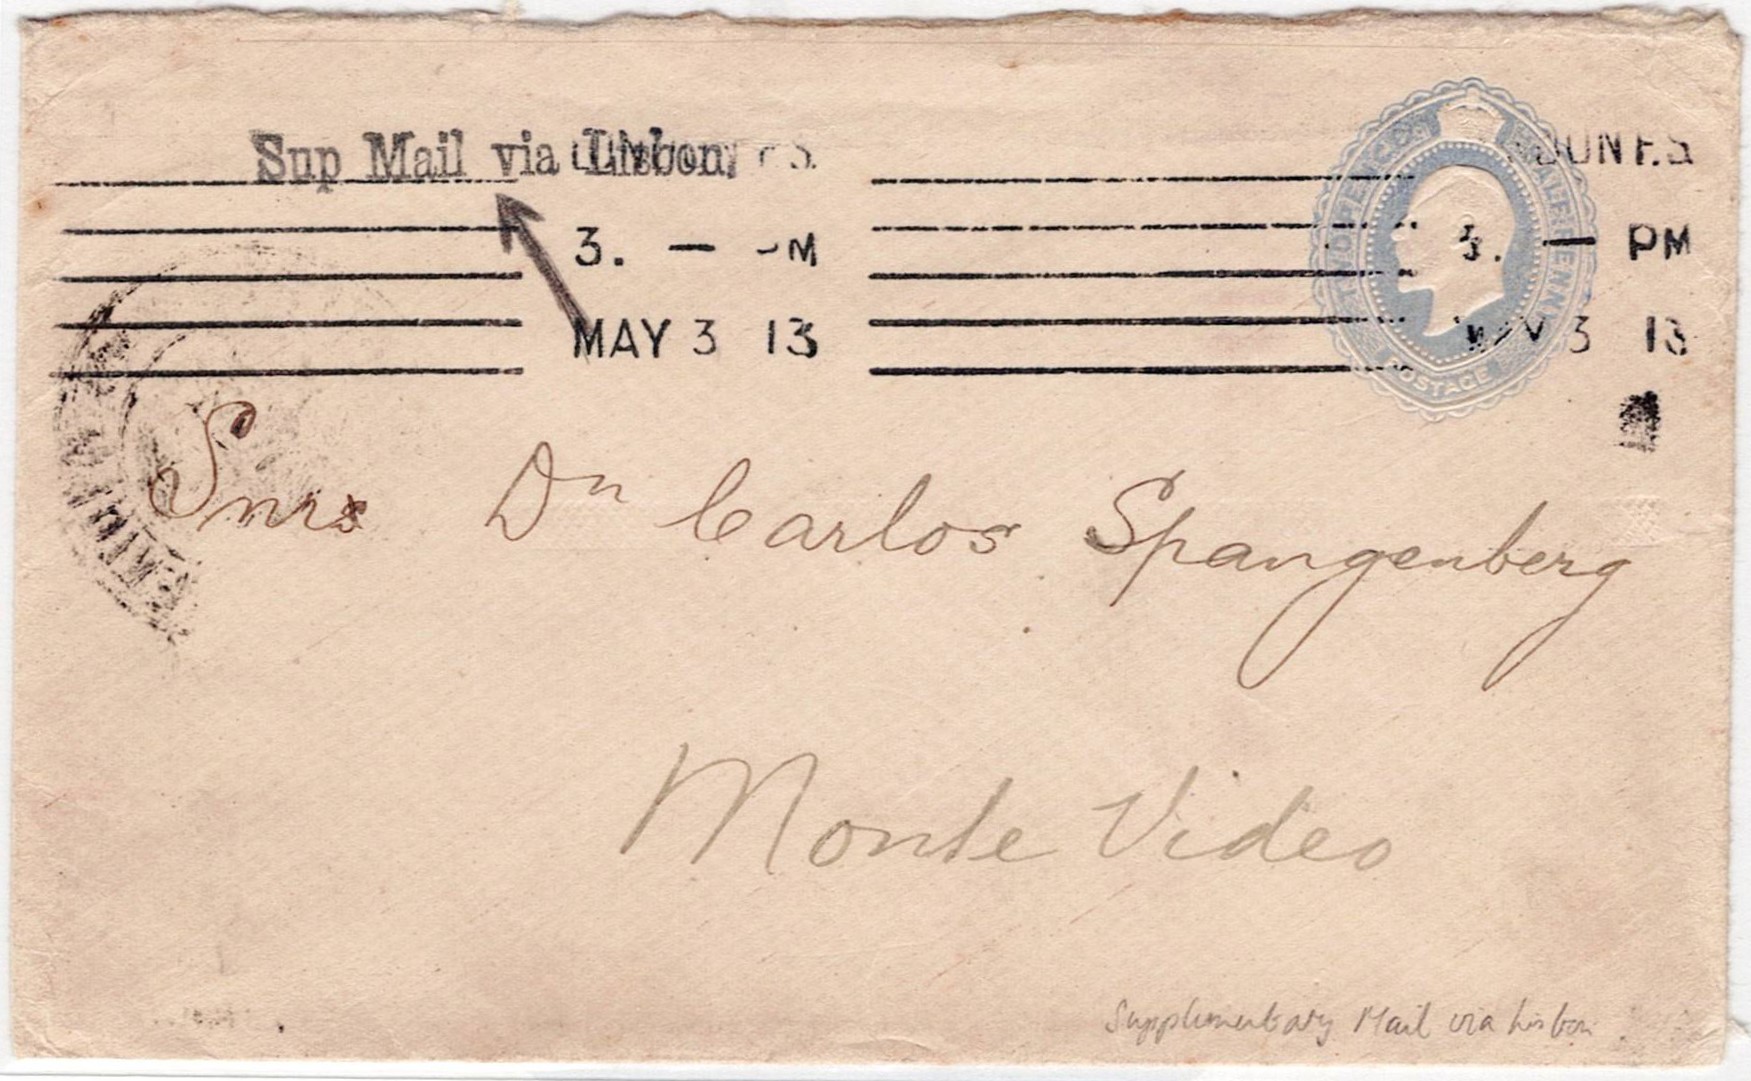 Sup Mail via Lisbon
3. — PM
MAY 3 13
3. — PM
MAY 3 13
TWOPENCE HALFPENNY
POSTAGE
Snrs Dn Carlos Spangenberg
Monte Video
Supplimentary Mail via Lisbon